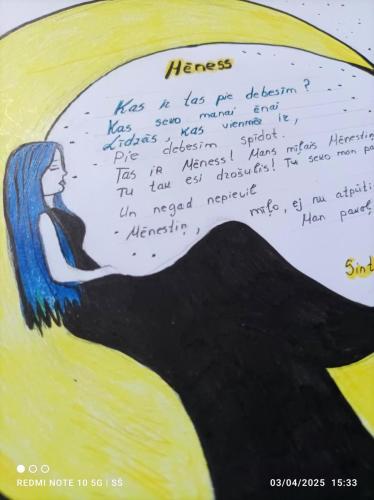 Mēness
Kas ir tas pie debesīm?
Kas seko manai ēnai
Līdzās, kas vienmēr ir,
Pie debesīm spīdot.
Tas ir Mēness! Mans mīļais Mēnestiņ
Tu tak esi drošulis! Tu seko man pa
Un negad nepievil
Mēnestiņ, mīļo, ej nu atpūti
Man pavēl
Sint
REDMI NOTE 10 5G | SŠ
03/04/2025 15:33